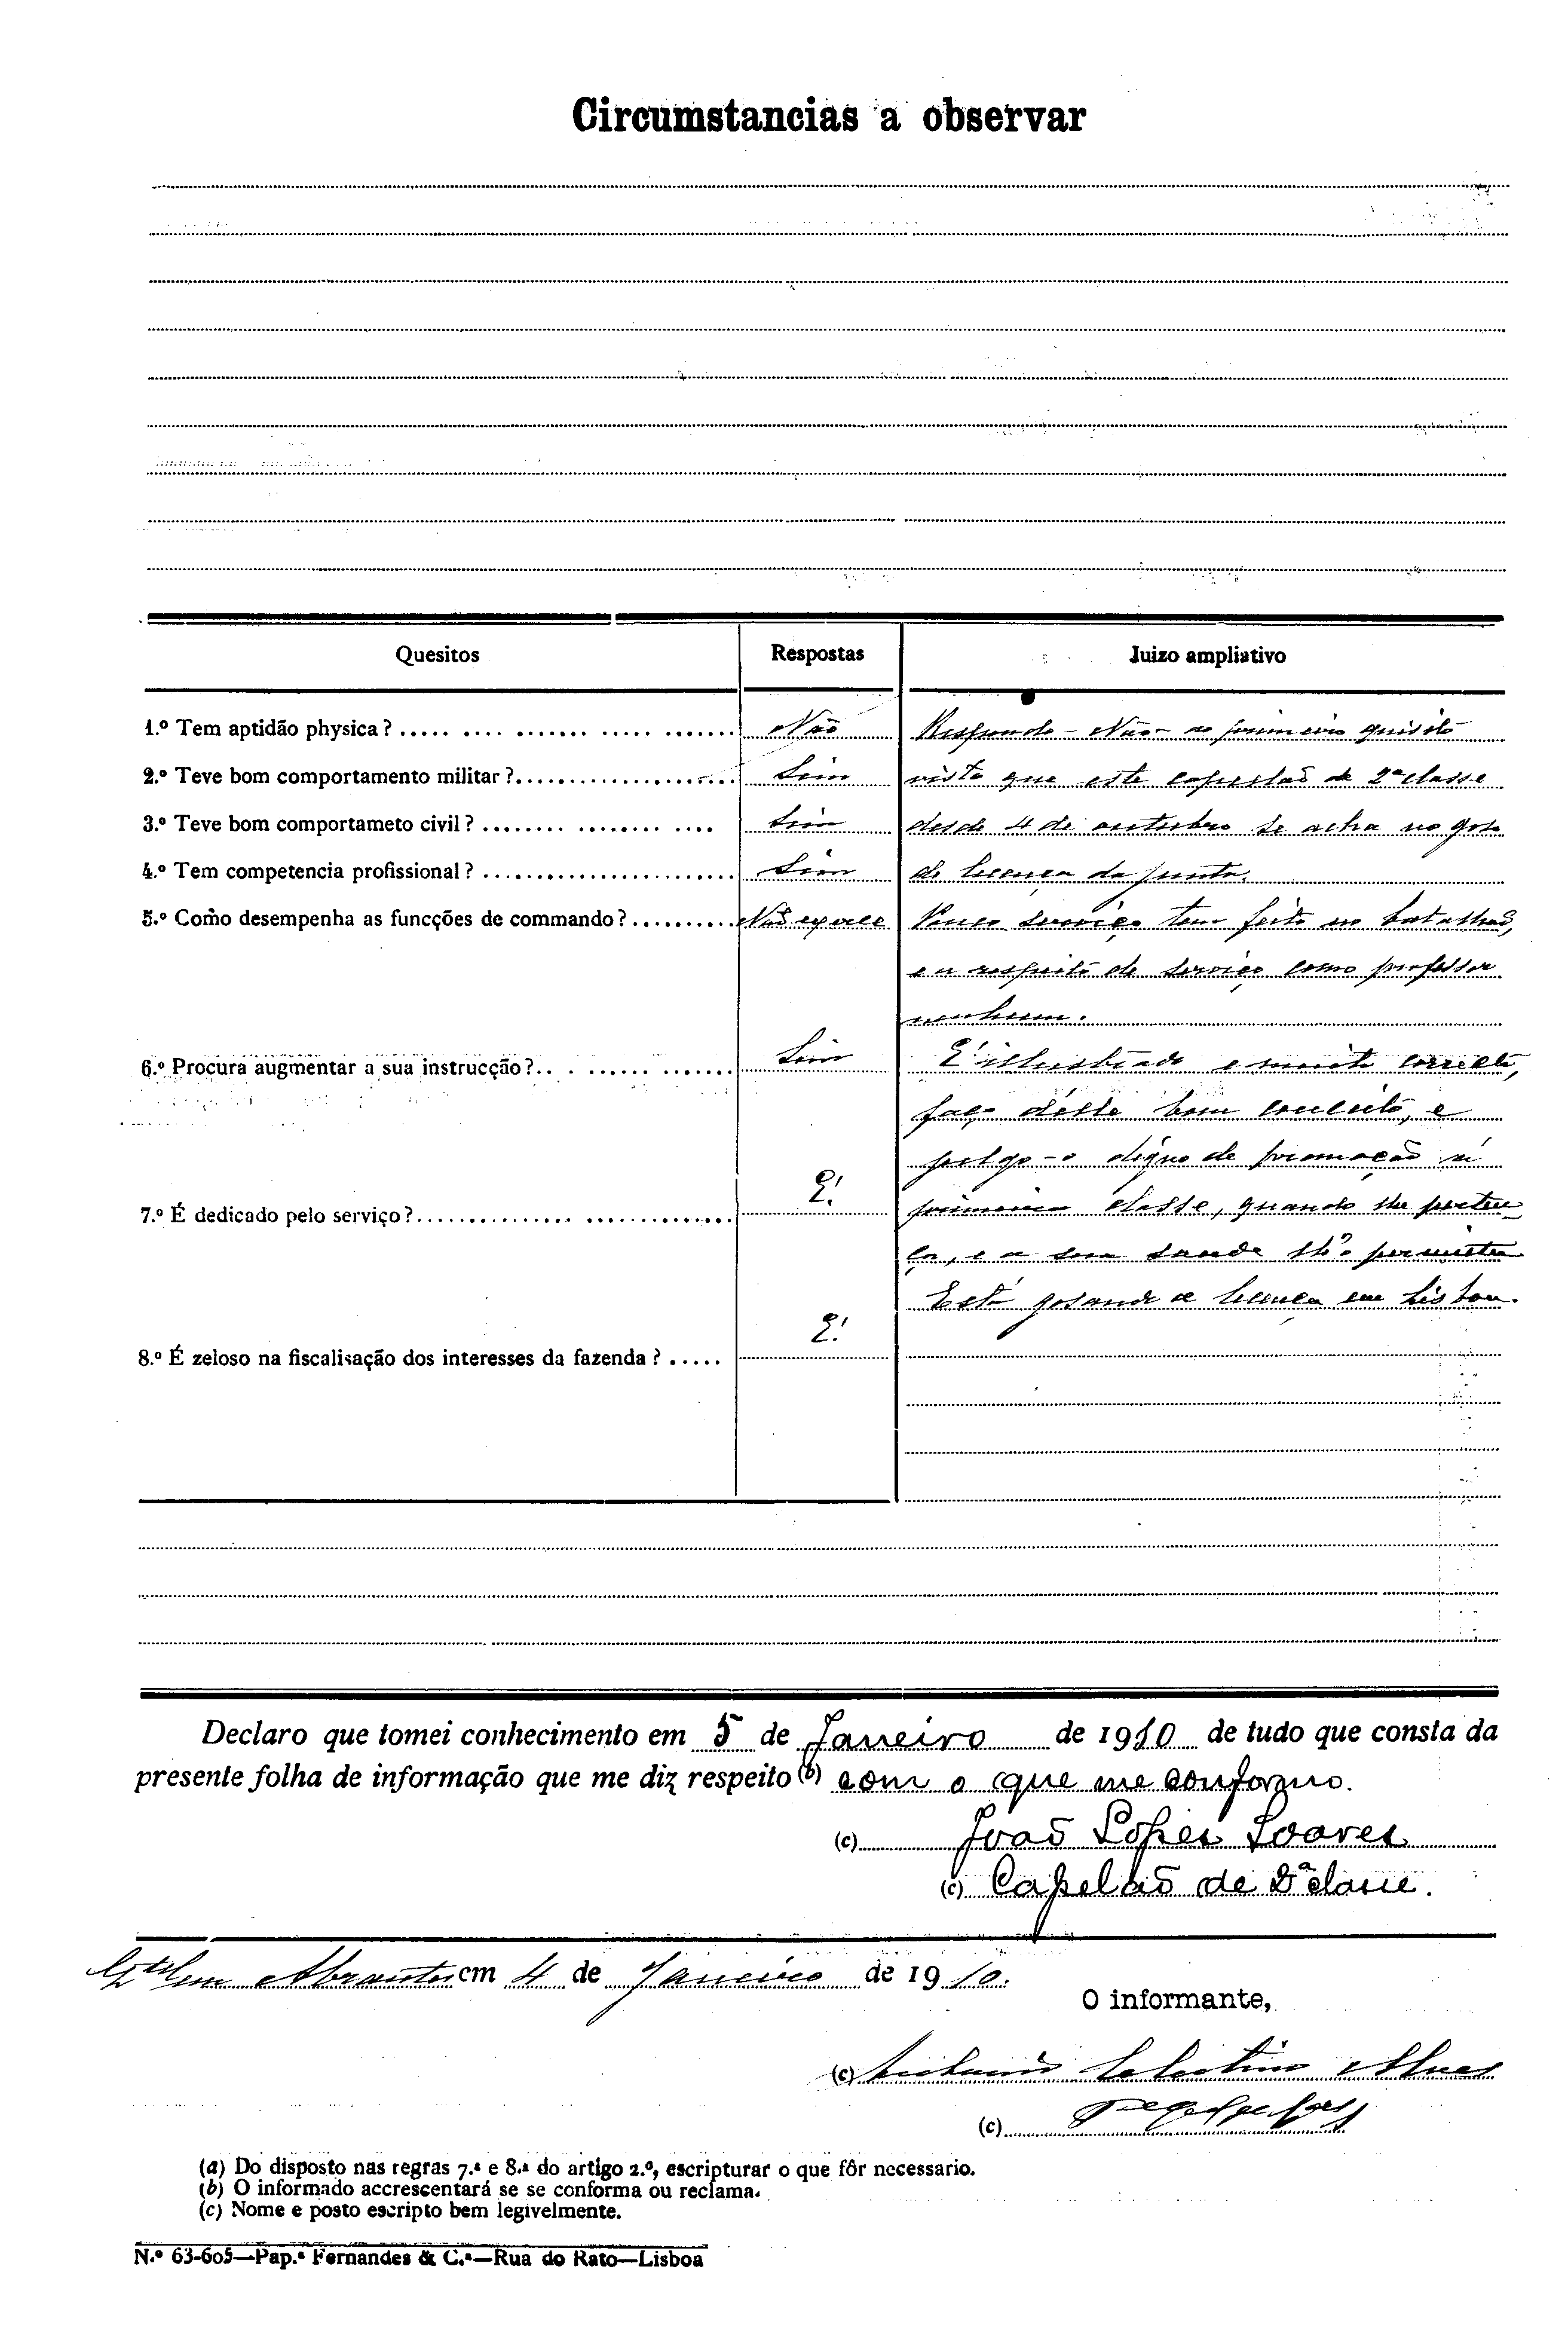 Circumstancias a observar
Quesitos Respostas Juizo ampliativo
1.º Tem aptidão physica? Não Respondo - Não - ao primeiro quisito
2.º Teve bom comportamento militar? Sim visto que este capellão de 2ª classe
3.º Teve bom comportameto civil? Sim desde 4 de outubro se acha no goso
4.º Tem competencia profissional? Sim de licença da junta.
5.º Como desempenha as funcções de commando? Não exerce Pouco serviço tem feito no batalhão,
e a respeito de serviço como professor
nenhum.
6.º Procura augmentar a sua instrucção? Sim E' illustrado e muito correcto,
faço d'elle bom conceito, e
julgo-o digno de promoção á
7.º É dedicado pelo serviço? E' primeira classe, quando lhe perten-
ça, e a sua saude lh'o permitta
Está gosando a licença em Lisboa.
8.º É zeloso na fiscalisação dos interesses da fazenda? E'
Declaro que tomei conhecimento em 5 de Janeiro de 1910 de tudo que consta da
presente folha de informação que me diz respeito (b) com o que me conformo.
(c) João Lopes Soares
(c) Capelão de 2ª classe.
Qtel em Abrantes em 4 de Janeiro de 1910.
O informante,
(c) Antonio Celestino Alves
(c)
(a) Do disposto nas regras 7.ª e 8.ª do artigo 2.º, escripturar o que fôr necessario.
(b) O informado accrescentará se se conforma ou reclama.
(c) Nome e posto escripto bem legivelmente.
N.º 63-605—Pap.ª Fernandes & C.ª—Rua do Rato—Lisboa